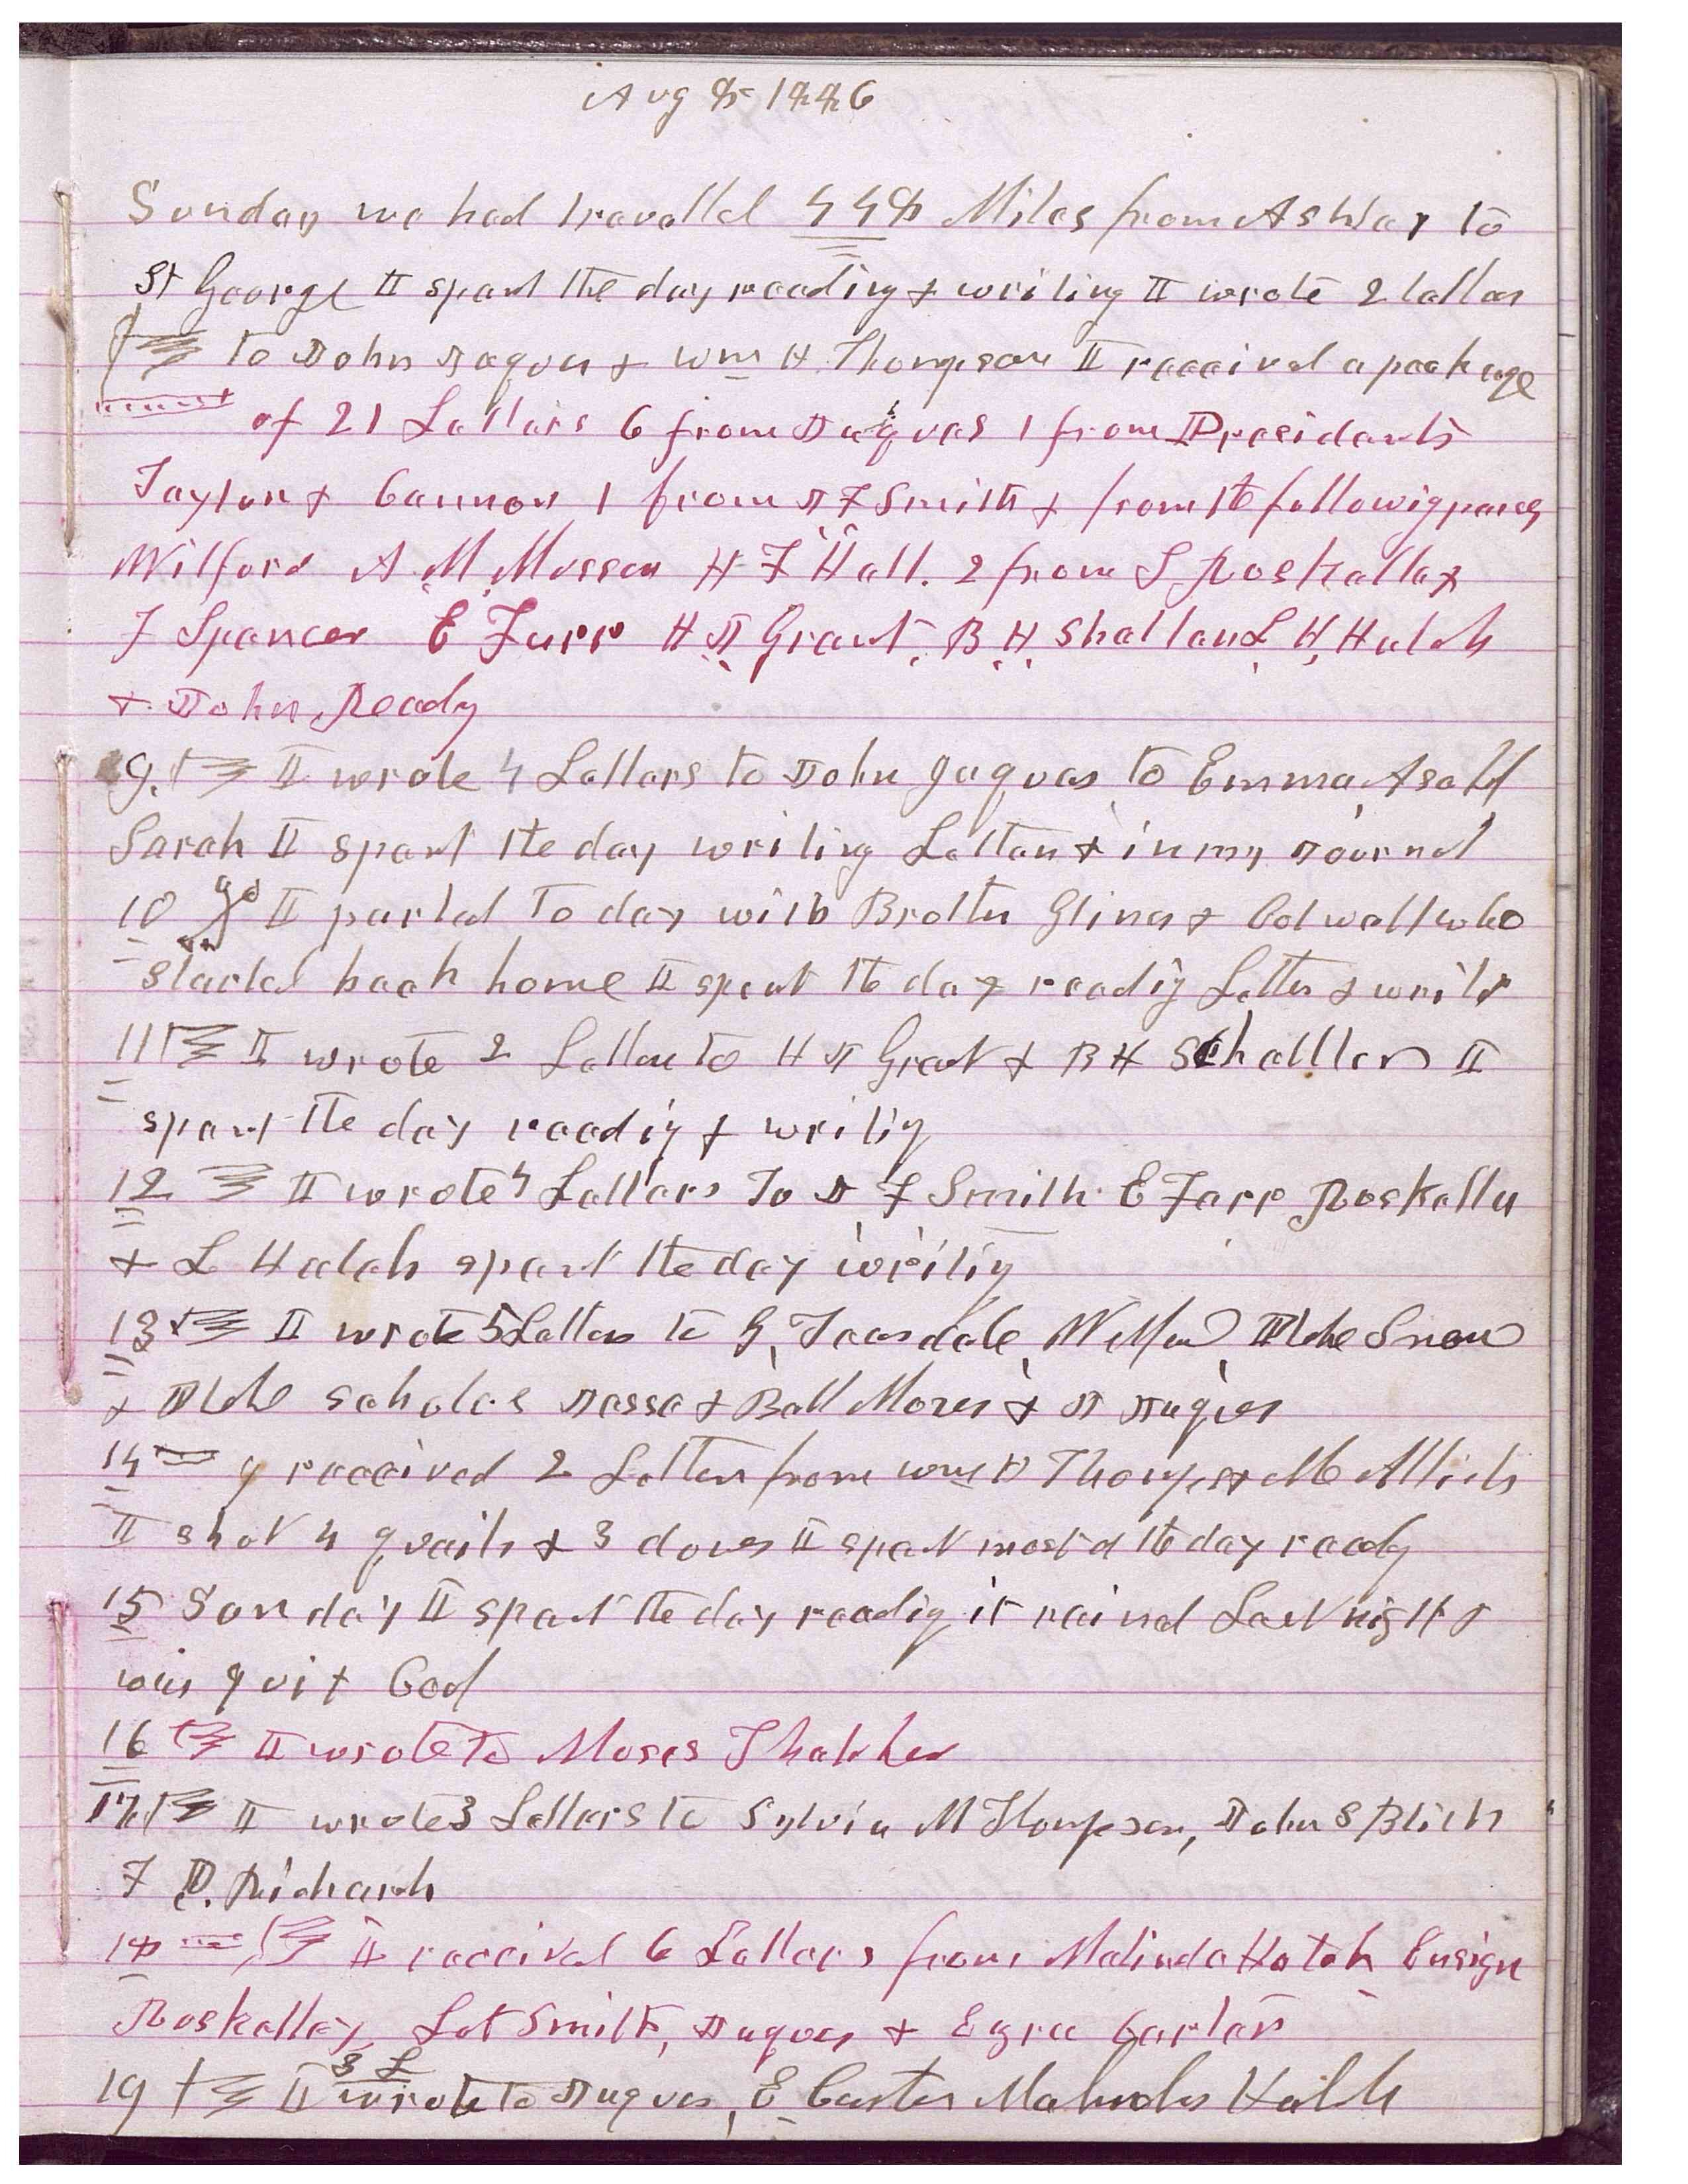 Aug 8 1886
Sunday we had travelled 448 Miles from to
St George I spent the day reading & writing I wrote 2 letters
to John Jaques & Wm H Thompson I received a package
of 21 Letters 6 from Jaques 1 from Presidents
Taylor & Cannon 1 from J F Smith & from the following
Wilford A M Musser H F Hall. 2 from S Roskelley
F Spencer E Farr H J Grant, B H Shettler L H, Hatch
& John Ready
9. I wrote 4 Letters to John Jaques to Emma Asahel
Sarah I spent the day writing Letters & in my Journal
10 I parted to day with Brother Glines & Colwell who
started back home I spent the day reading Letters & write
11 I wrote 2 Letters to H J Grant & B H Schettler I
spent the day reading & writig
12 I wrote 4 Letters To J F Smith E Farr Roskelly
& L Hatch spent the day writig
13 I wrote 5 Letters to G, Teasdale, Wilford, Phebe Snow
& Phebe Scholes Jesse & Bell Moses & J Jaques
14 I received 2 Letters from Wm H Thompson & M
I shot 4 quails & 3 doves I spent most of the day readg
15 Sunday I spent the day readig it rained Last night &
was quit Cool
16 I wrote to Moses Thatcher
17 I wrote 3 Letters to Sylvia M Thompson, John S Blith
F D. Richards
18 I received 6 Letters from Malinda Hatch Ensign
Roskelley, Lot Smith, Jaques & Ezra Carter
19 I wrote 3 L to Jaques, E Carter Malinda Hatch